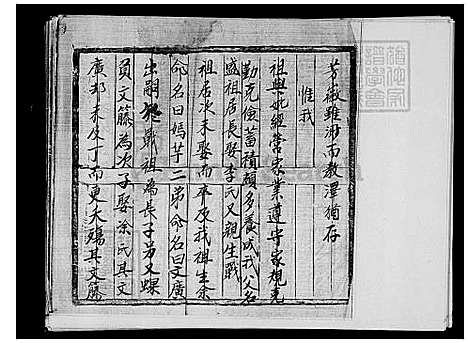 芳徽雖渺而教澤猶存
惟我
祖與妣經營家業遵守家規克
勤克儉蓄積頗多養成我父名
盛祖居長娶李氏又親生戰
祖居次未娶而卒及我祖生余
命名曰媽芉二弟命名曰文廣
出嗣 戰祖為長子另又螺
員文藤為次子娶余氏其文
廣却未及丁而更夭殤其文藤